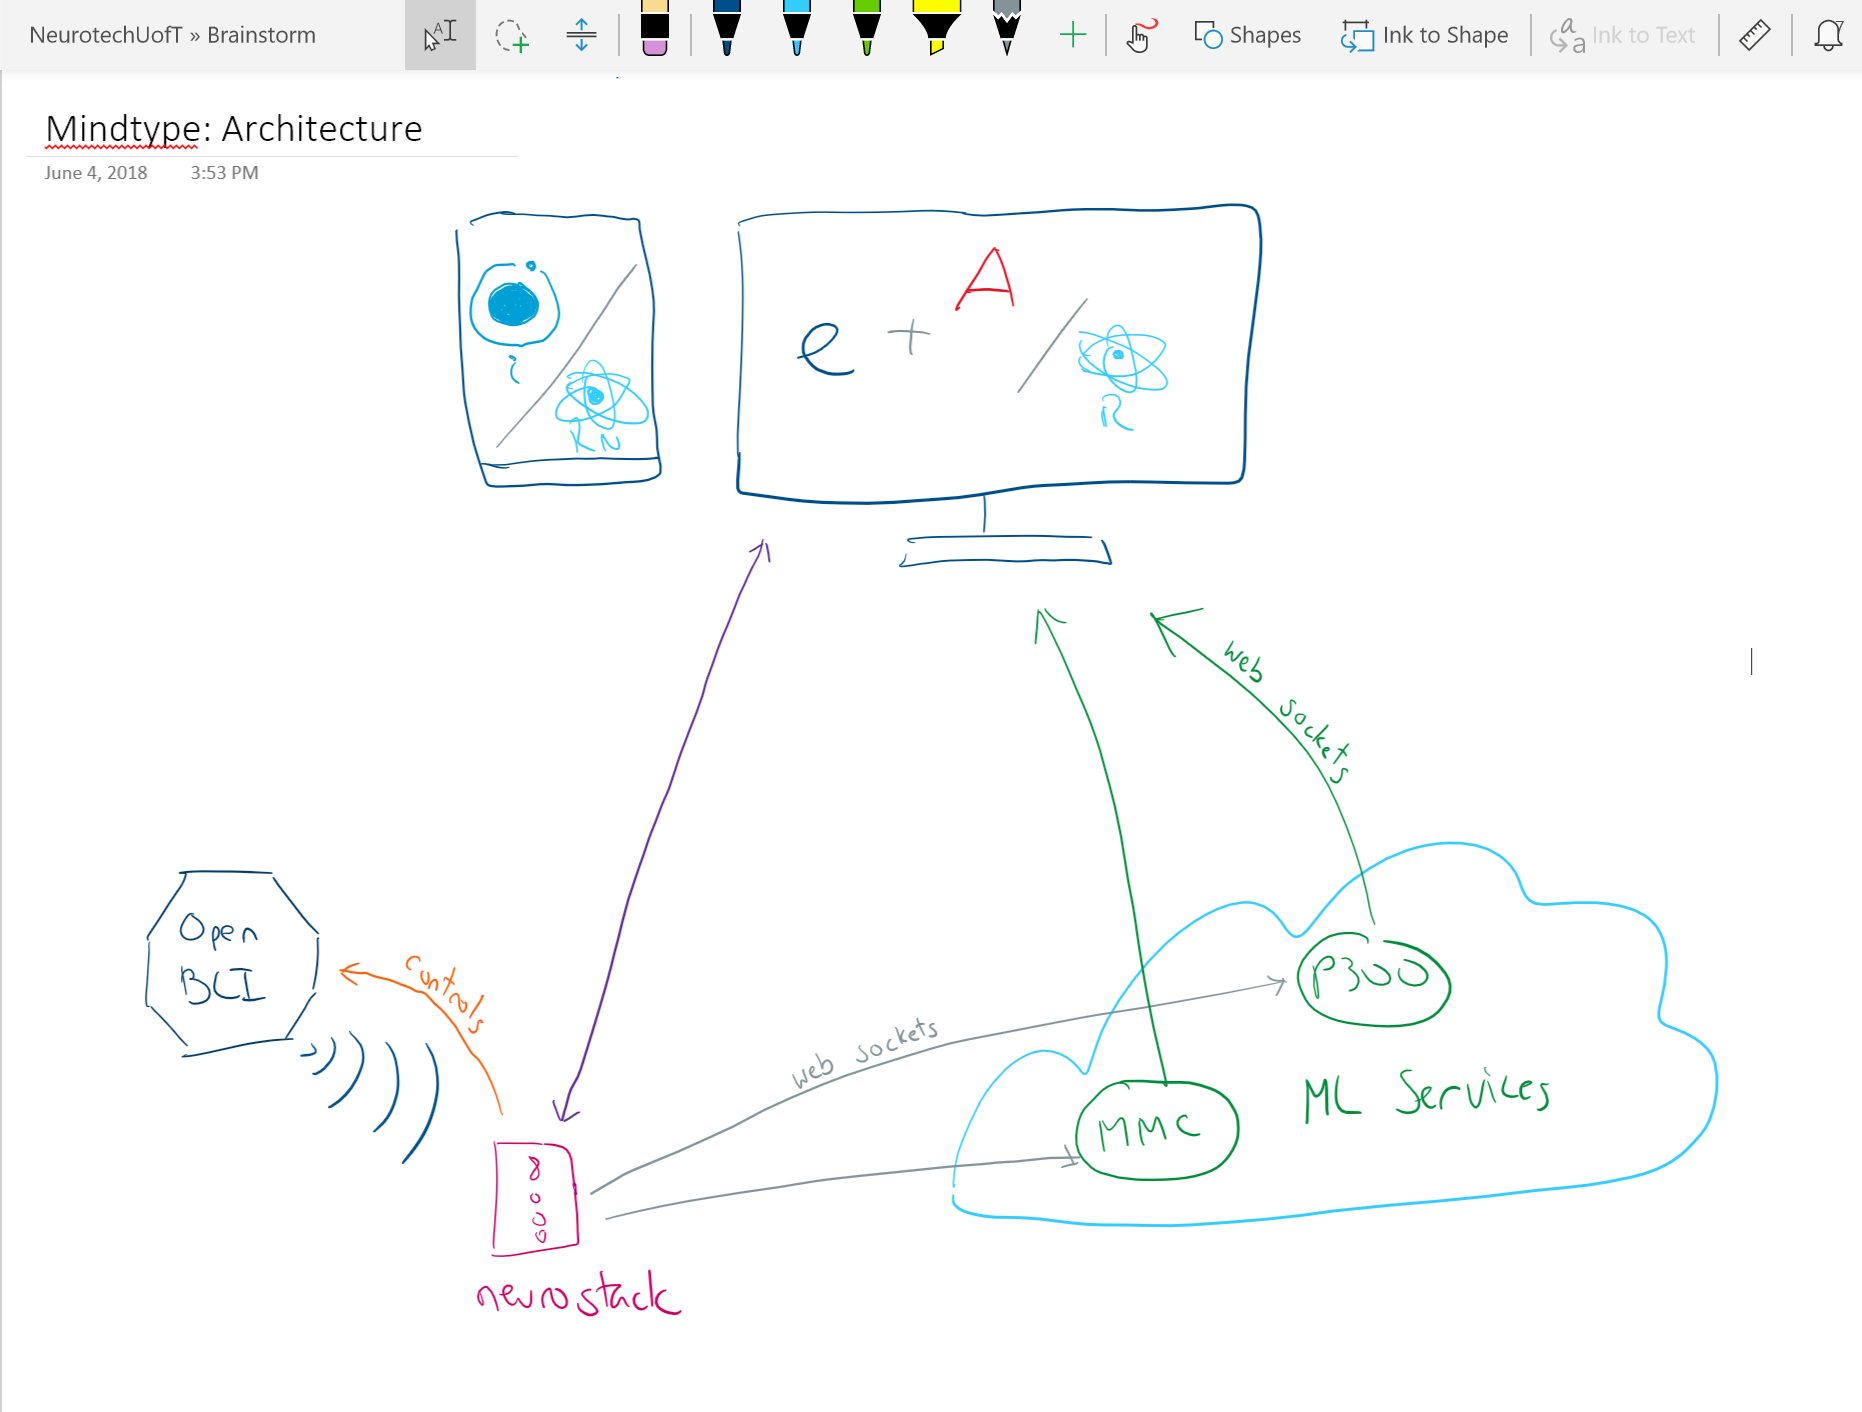 NeurotechUofT » Brainstorm
Shapes
Ink to Shape
Ink to Text
Mindtype: Architecture
June 4, 2018 3:53 PM
A
e +
i
R
RN
web sockets
Open
BCI
controls
P300
web sockets
ML Services
MMC
neurostack